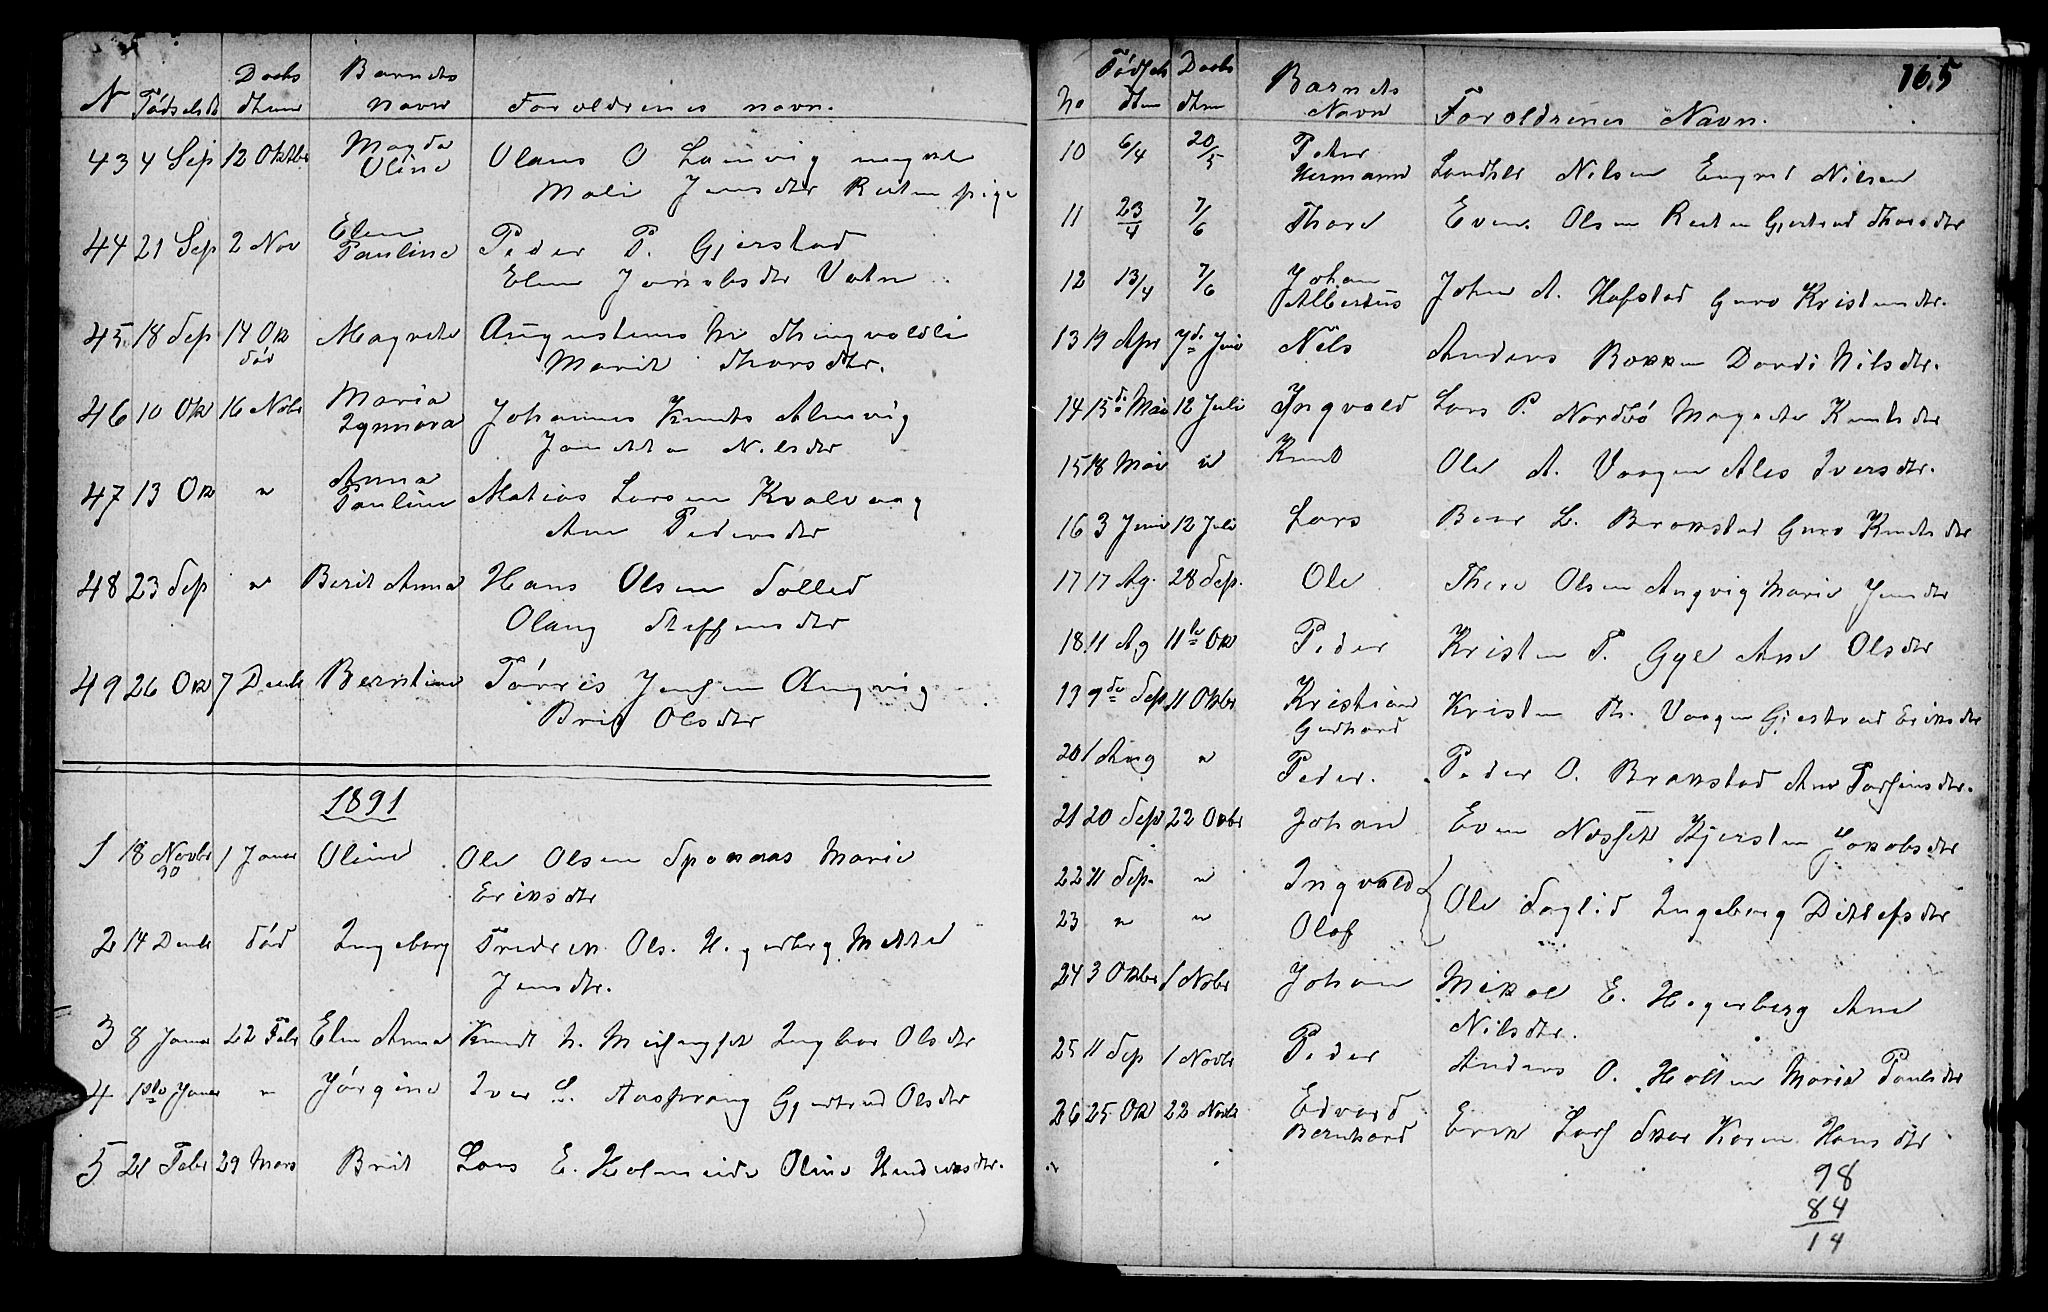 N Fødselsd Daabs dknn Barnets navn Foroldrenes navn.
43 4 Sep 12 Oktbr Magda Oline Olaus O
Mali Jens dtr Reiten pige
44 21 Sep 2 Nov Elen Pauline Peder P. Gjerstad
Elen Jakobs dtr Vatn
45 18 Sep 14 Ok død Magrete
Marit Thors dtr.
46 10 Ok 16 Nobr Maria Johannes Knuts Almvig
Nils dtr
47 13 Ok " Anna Pauline Matias Larsen Kvalvaag
Ane Peders dtr
48 23 Sep " Berit Anna Hans Olsen Solled
Olaug Steffens dtr
49 26 Ok 7 Decb Berntine Tørris Jensen Angvig
Brit Ols dtr
1891
1 18 Novbr 90 1 Janu Oline Ole Olsen Marie
Eriks dtr
2 14 Decb død Ingeborg Fredrik Ols. Hegerberg Mette
Jens dtr.
3 8 Janu 22 Febr Elen Anna Knudt N. Ingbor Ols dtr
4 1ste Janu " Jørgine Iver L. Aasprang Gjertrud Ols dtr
5 21 Febr 29 Mars Brit Lars E. Holmeide Oline
165
No Fødsels dtn Daabs dtm Barnets Navn Foroldrenes Navn.
10 6/4 20/5 Peter Hermann Nilsen Nilsen
11 23/4 7/6 Thore Even Olsen Reiten Gjertrud Thors dtr
12 13/4 7/6 Johan Albertus John A. Hafstad Guro Kristens dtr.
13 19 Apr 7d. Juni Nels Anders Bakken Dordi Nils dtr.
14 15d. Mai 12 Juli Ingvald Lars P. Nordbø Magrete Knuts dtr
15 18 Mai " Knut Ole A. Vaagen Ales Ivers dtr.
16 3 Juni 12 Juli Lars L. Brakstad Guro Knuts dtr
17 17 Ag. 28 Sep. Ole Thore Olsen Angvig Marie Jens dtr
18 11 Ag 11te Ok Peder Kristen P. Gyl Ane Ols dtr
19 9de Sep 11 Okbr Kristian Gerhard Kristen Vaagen Gjertrud Eriks dtr
20 1 Aug " Peder. Peder O. Brakstad Ane Torstens dtr.
21 20 Sep 22 Okbr Johan Even Kjersten Jakobs dtr
22 11 Sep. " Ingvald
23 " " Olaf Ole Foglid Ingeborg Ditlefs dtr
24 3 Okbr 1 Nobr Johan Mikal E. Hegerberg Ane
Nils dtr.
25 11 Sep 1 Novbr Peder Anders O. Holten Marie Pauls dtr
26 25 Ok 22 Novb Edvard Bernhard Erik Lars Skar Karen Hans dtr
98
84
14